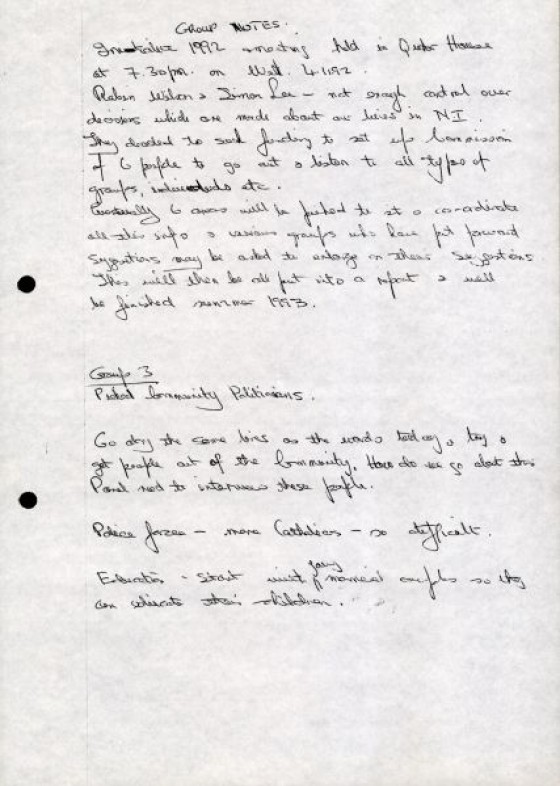 GROUP NOTES.
Initiative 1992 meeting held in Quaker House
at 7.30pm. on Wed. 4.11.92.
Robin Wilson & Simon Lee - not enough control over
decisions which are made about our lives in NI.
They decided to seek funding to set up Commission
of 6 people to go out & listen to all types of
groups, individuals etc.
Eventually 6 will be to sit & co-ordinate
all this info & various groups who have put forward
suggestions may be asked to enlarge on their suggestions.
This will then be all put into a report & will
be finished summer 1993.
Group 3
Community Politicians.
Go along the same lines as the today, try &
get people out of the Community. How do we go about this
Panel need to interview these people.
Police force - more Catholics - so difficult.
Education - Start with young married couples so they
can educate their children.